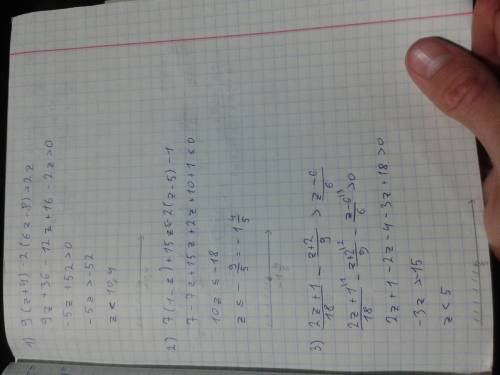 1) 9(z+4)-2(6z-8)>2z
9z+36-12z+16-2z>0
-5z+52>0
-5z>-52
z<10,4
2) 7(1-z)+15z≤2(z-5)-1
7-7z+15z+2z+10+1≤0
10z≤-18
z≤-9/5=-1 4/5
3) (2z+1)/18-(z+2)/9>(z-6)/6
(2z+1)/18 \1-(z+2)/9 \2-(z-6)/6 \3>0
2z+1-2z-4-3z+18>0
-3z>-15
z<5